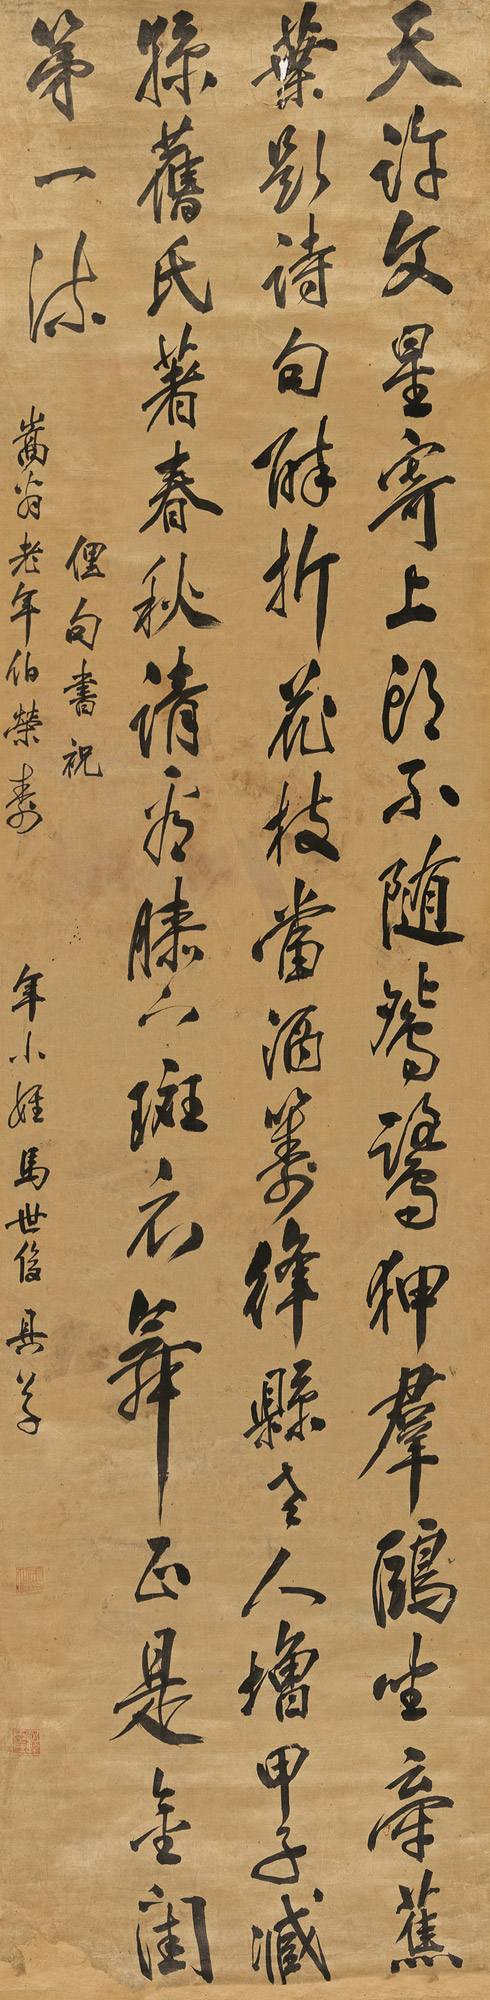 天許文星寄上不隨鴛鷺狎羣鷗坐牽蕉
葉題詩句醉折花枝當酒籌絳縣老人增甲子臧
孫舊氏著春秋請看膝下斑衣舞正是金閨
第一流
俚句書祝
嵩翁老年伯榮壽
年小姪馬世俊具草